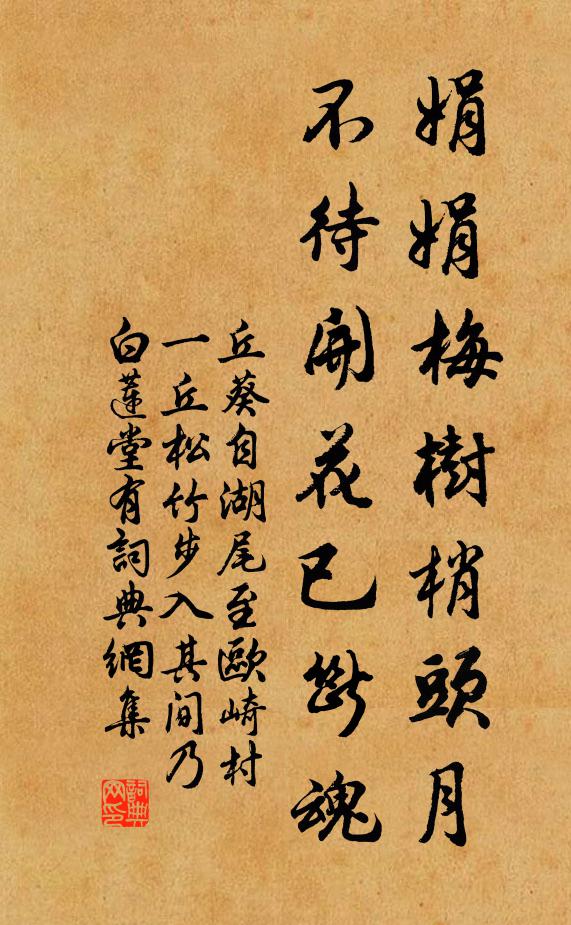 娟娟梅樹梢頭月
不待開花已斷魂
丘葵自湖尾至歐崎村
一丘松竹步入其間乃
白蓮堂有詞典網集
詞典網印